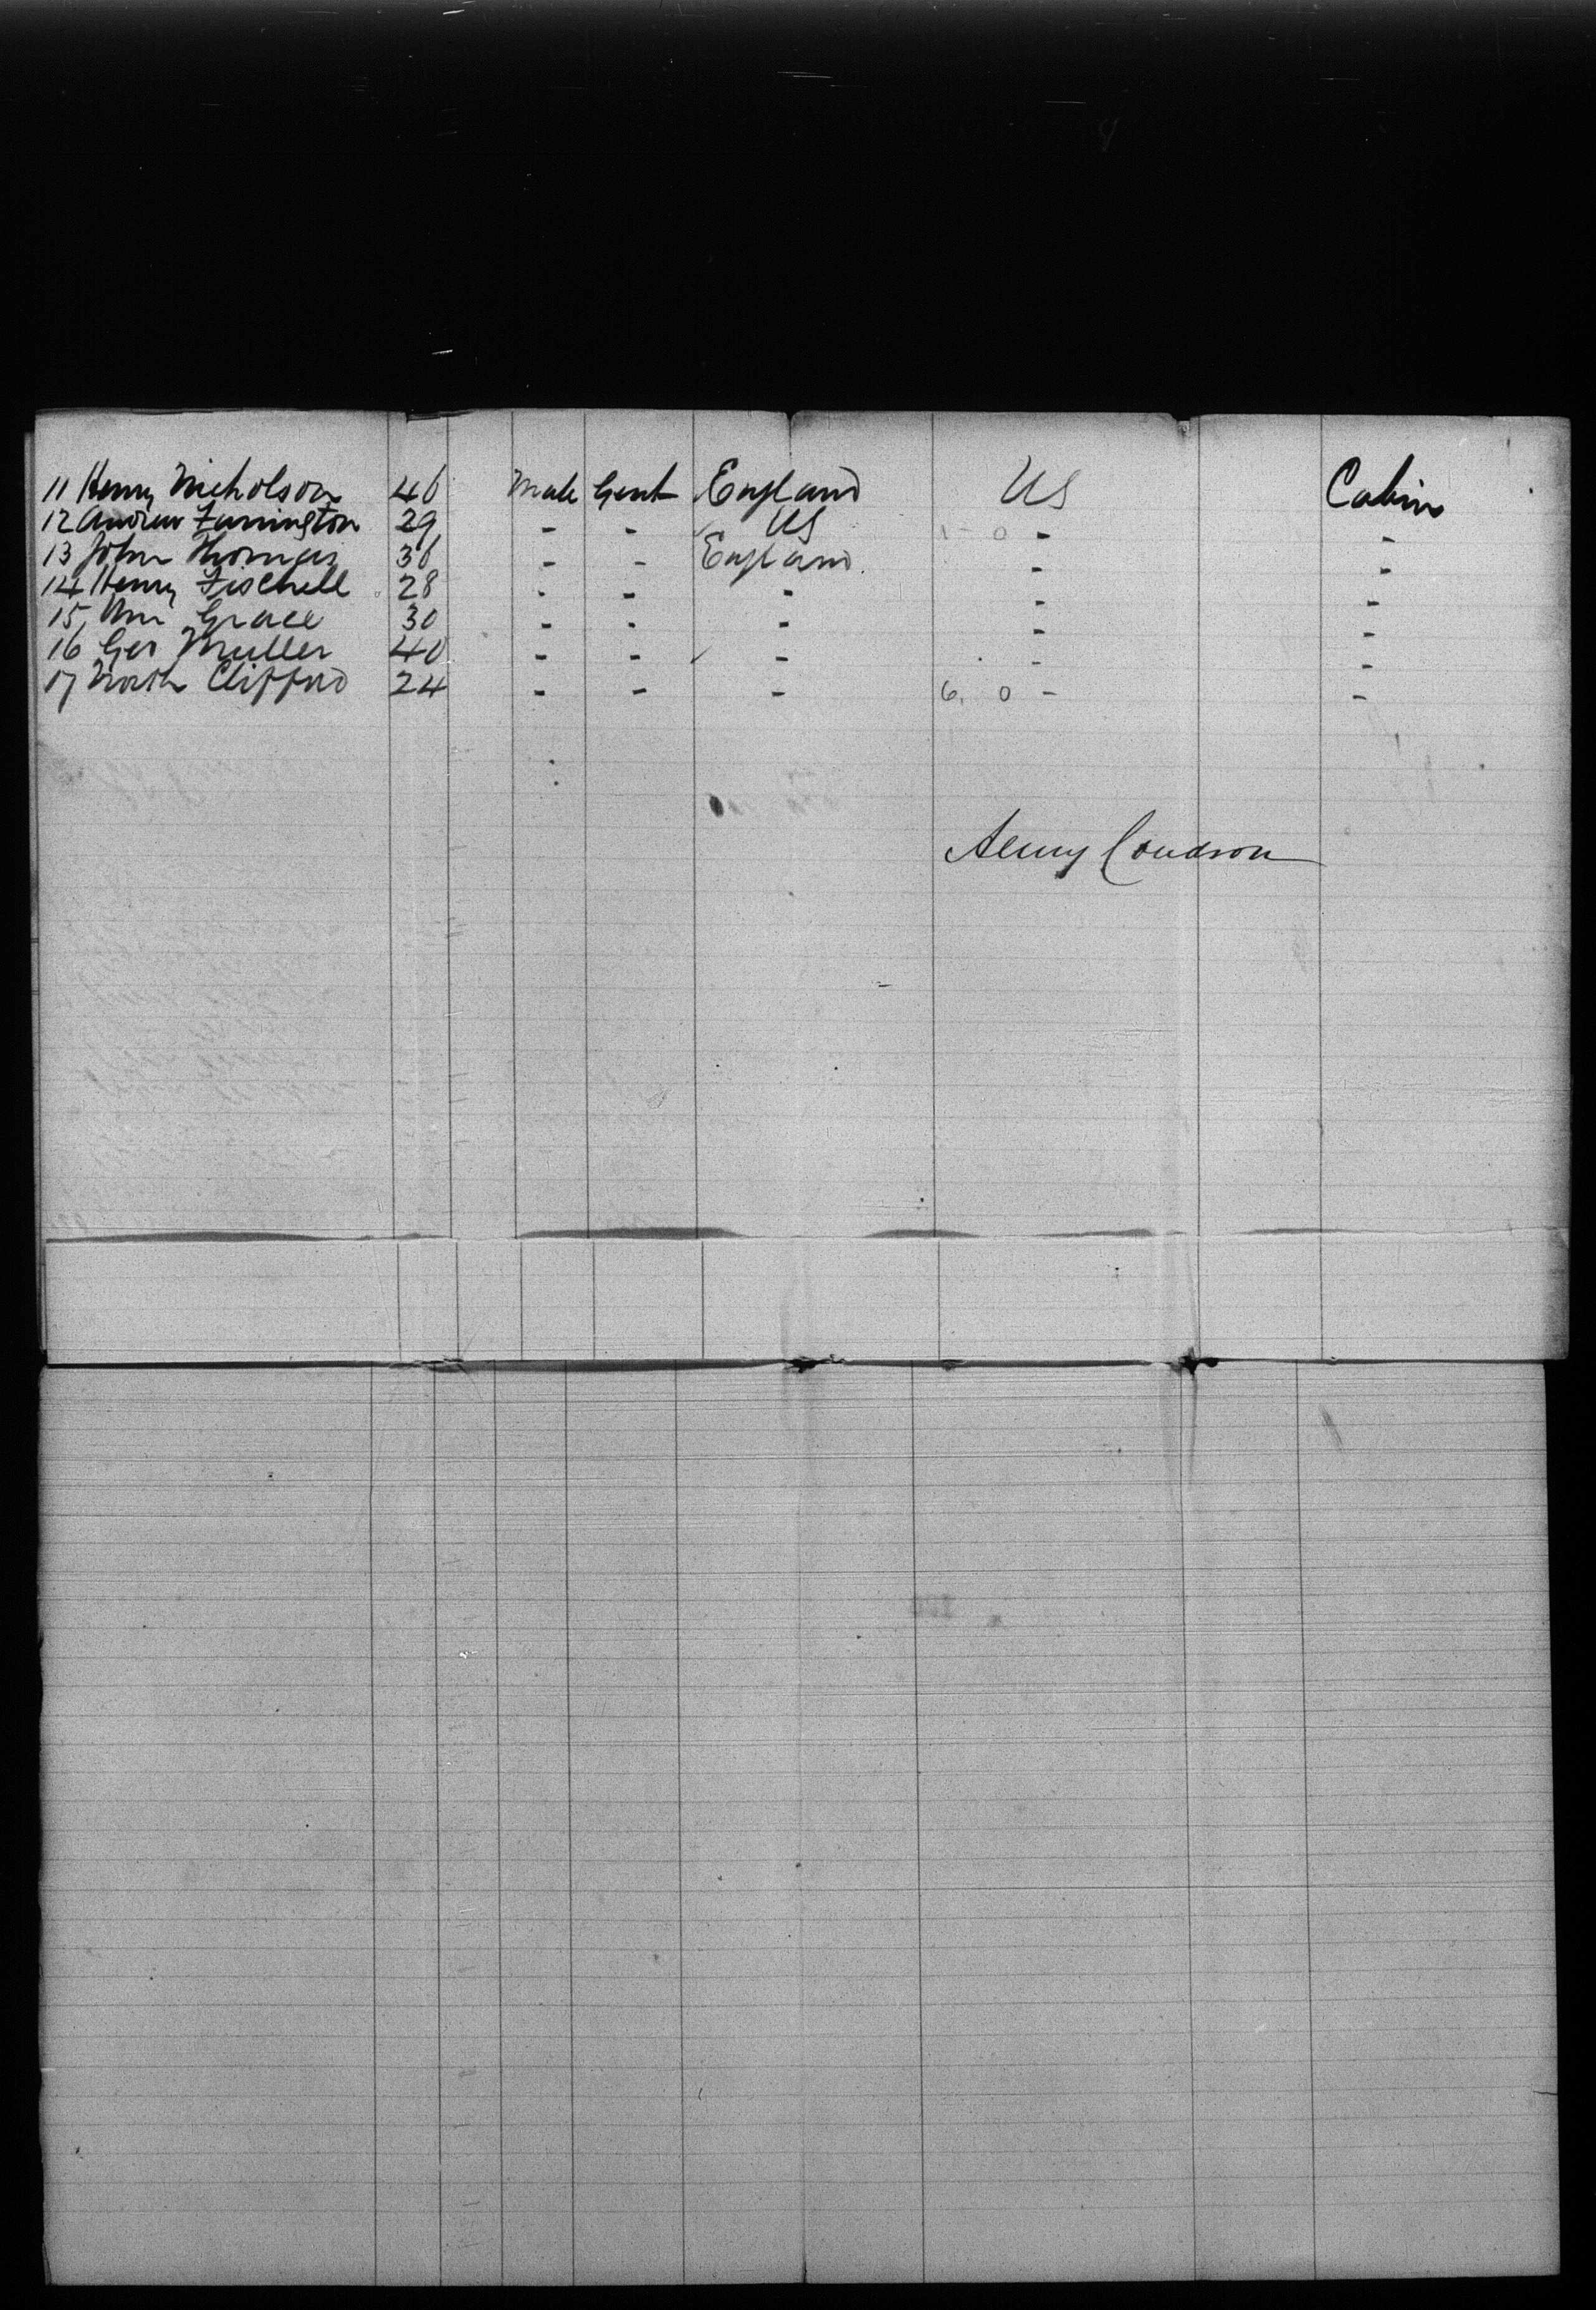 11 Henry Nicholson 46 Male Gent England US Cabin
12 Andrew Farrington 29 - - US 1 - 0 - -
13 John Thomas 36 - - England. - -
14 Henry Fischell 28 - - - - -
15 Wm Grace 30 - - - - -
16 Geo Muller 40 - - - - -
17 Clifford 24 - - - 6. 0 - -
Henry